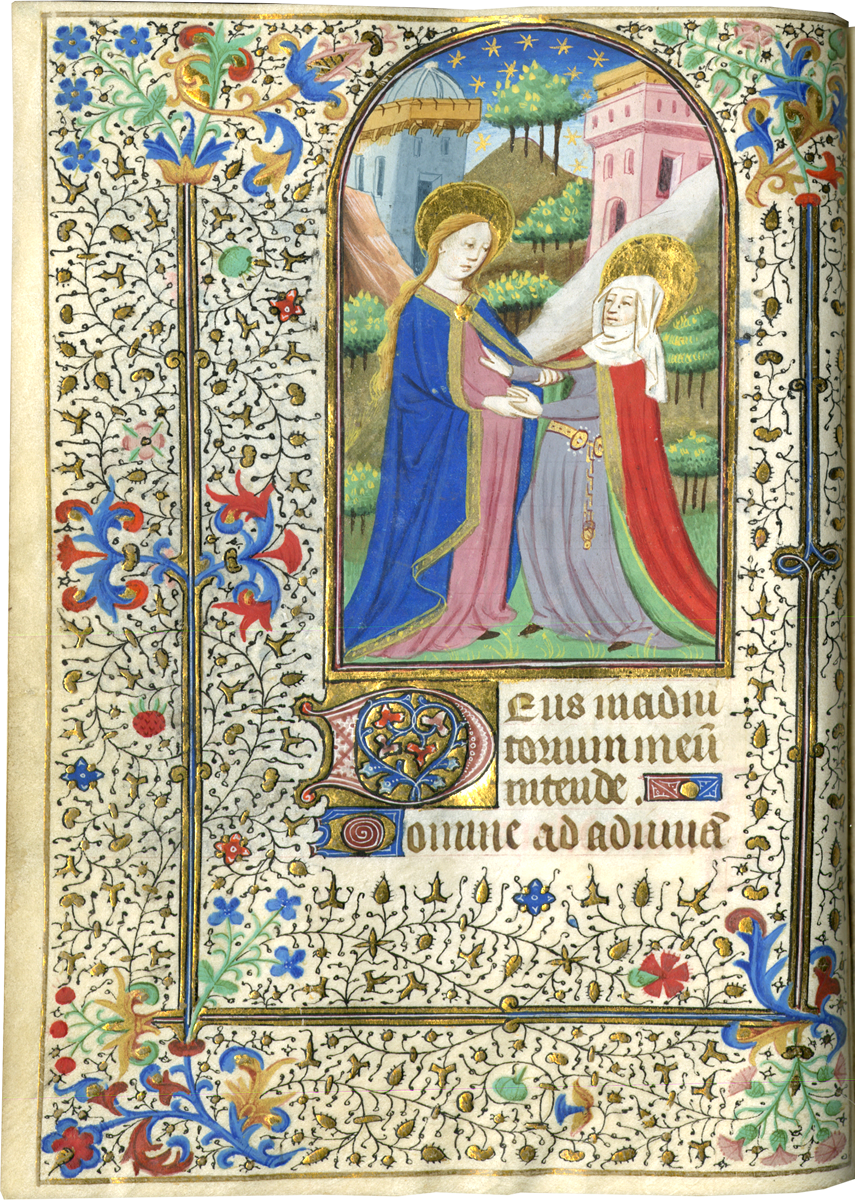 Deus in adiu
torium meū
intende.
Domine ad adiuuā